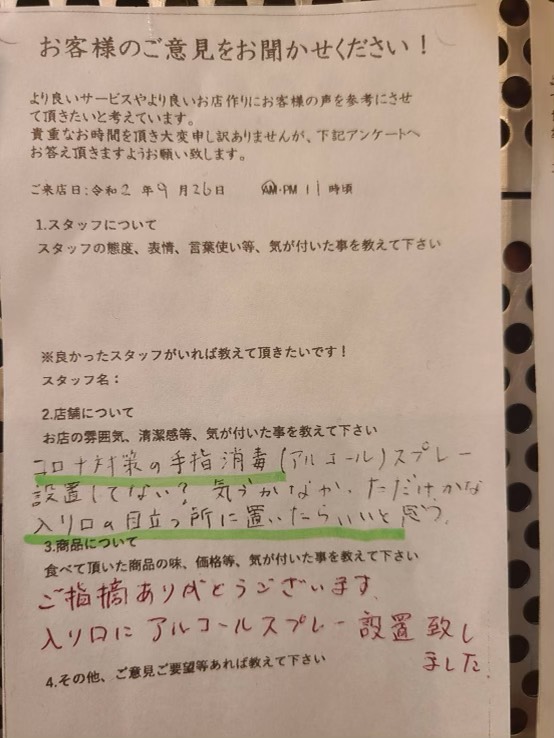 お客様のご意見をお聞かせください！
より良いサービスやより良いお店作りにお客様の声を参考にさせ
て頂きたいと考えています。
貴重なお時間を頂き大変申し訳ありませんが、下記アンケートへ
お答え頂きますようお願い致します。
ご来店日：令和2年9月26日 AM・PM 11時頃
1.スタッフについて
スタッフの態度、表情、言葉使い等、気が付いた事を教えて下さい
※良かったスタッフがいれば教えて頂きたいです！
スタッフ名：
2.店舗について
お店の雰囲気、清潔感等、気が付いた事を教えて下さい
コロナ対策の手指消毒(アルコール)スプレー
設置してない？気づかなかったただけかな
入り口の目立つ所に置いたらいいと思う。
3.商品について
食べて頂いた商品の味、価格等、気が付いた事を教えて下さい
ご指摘ありがとうございます。
入り口にアルコールスプレー設置致し
ました。
4.その他、ご意見ご要望等あれば教えて下さい